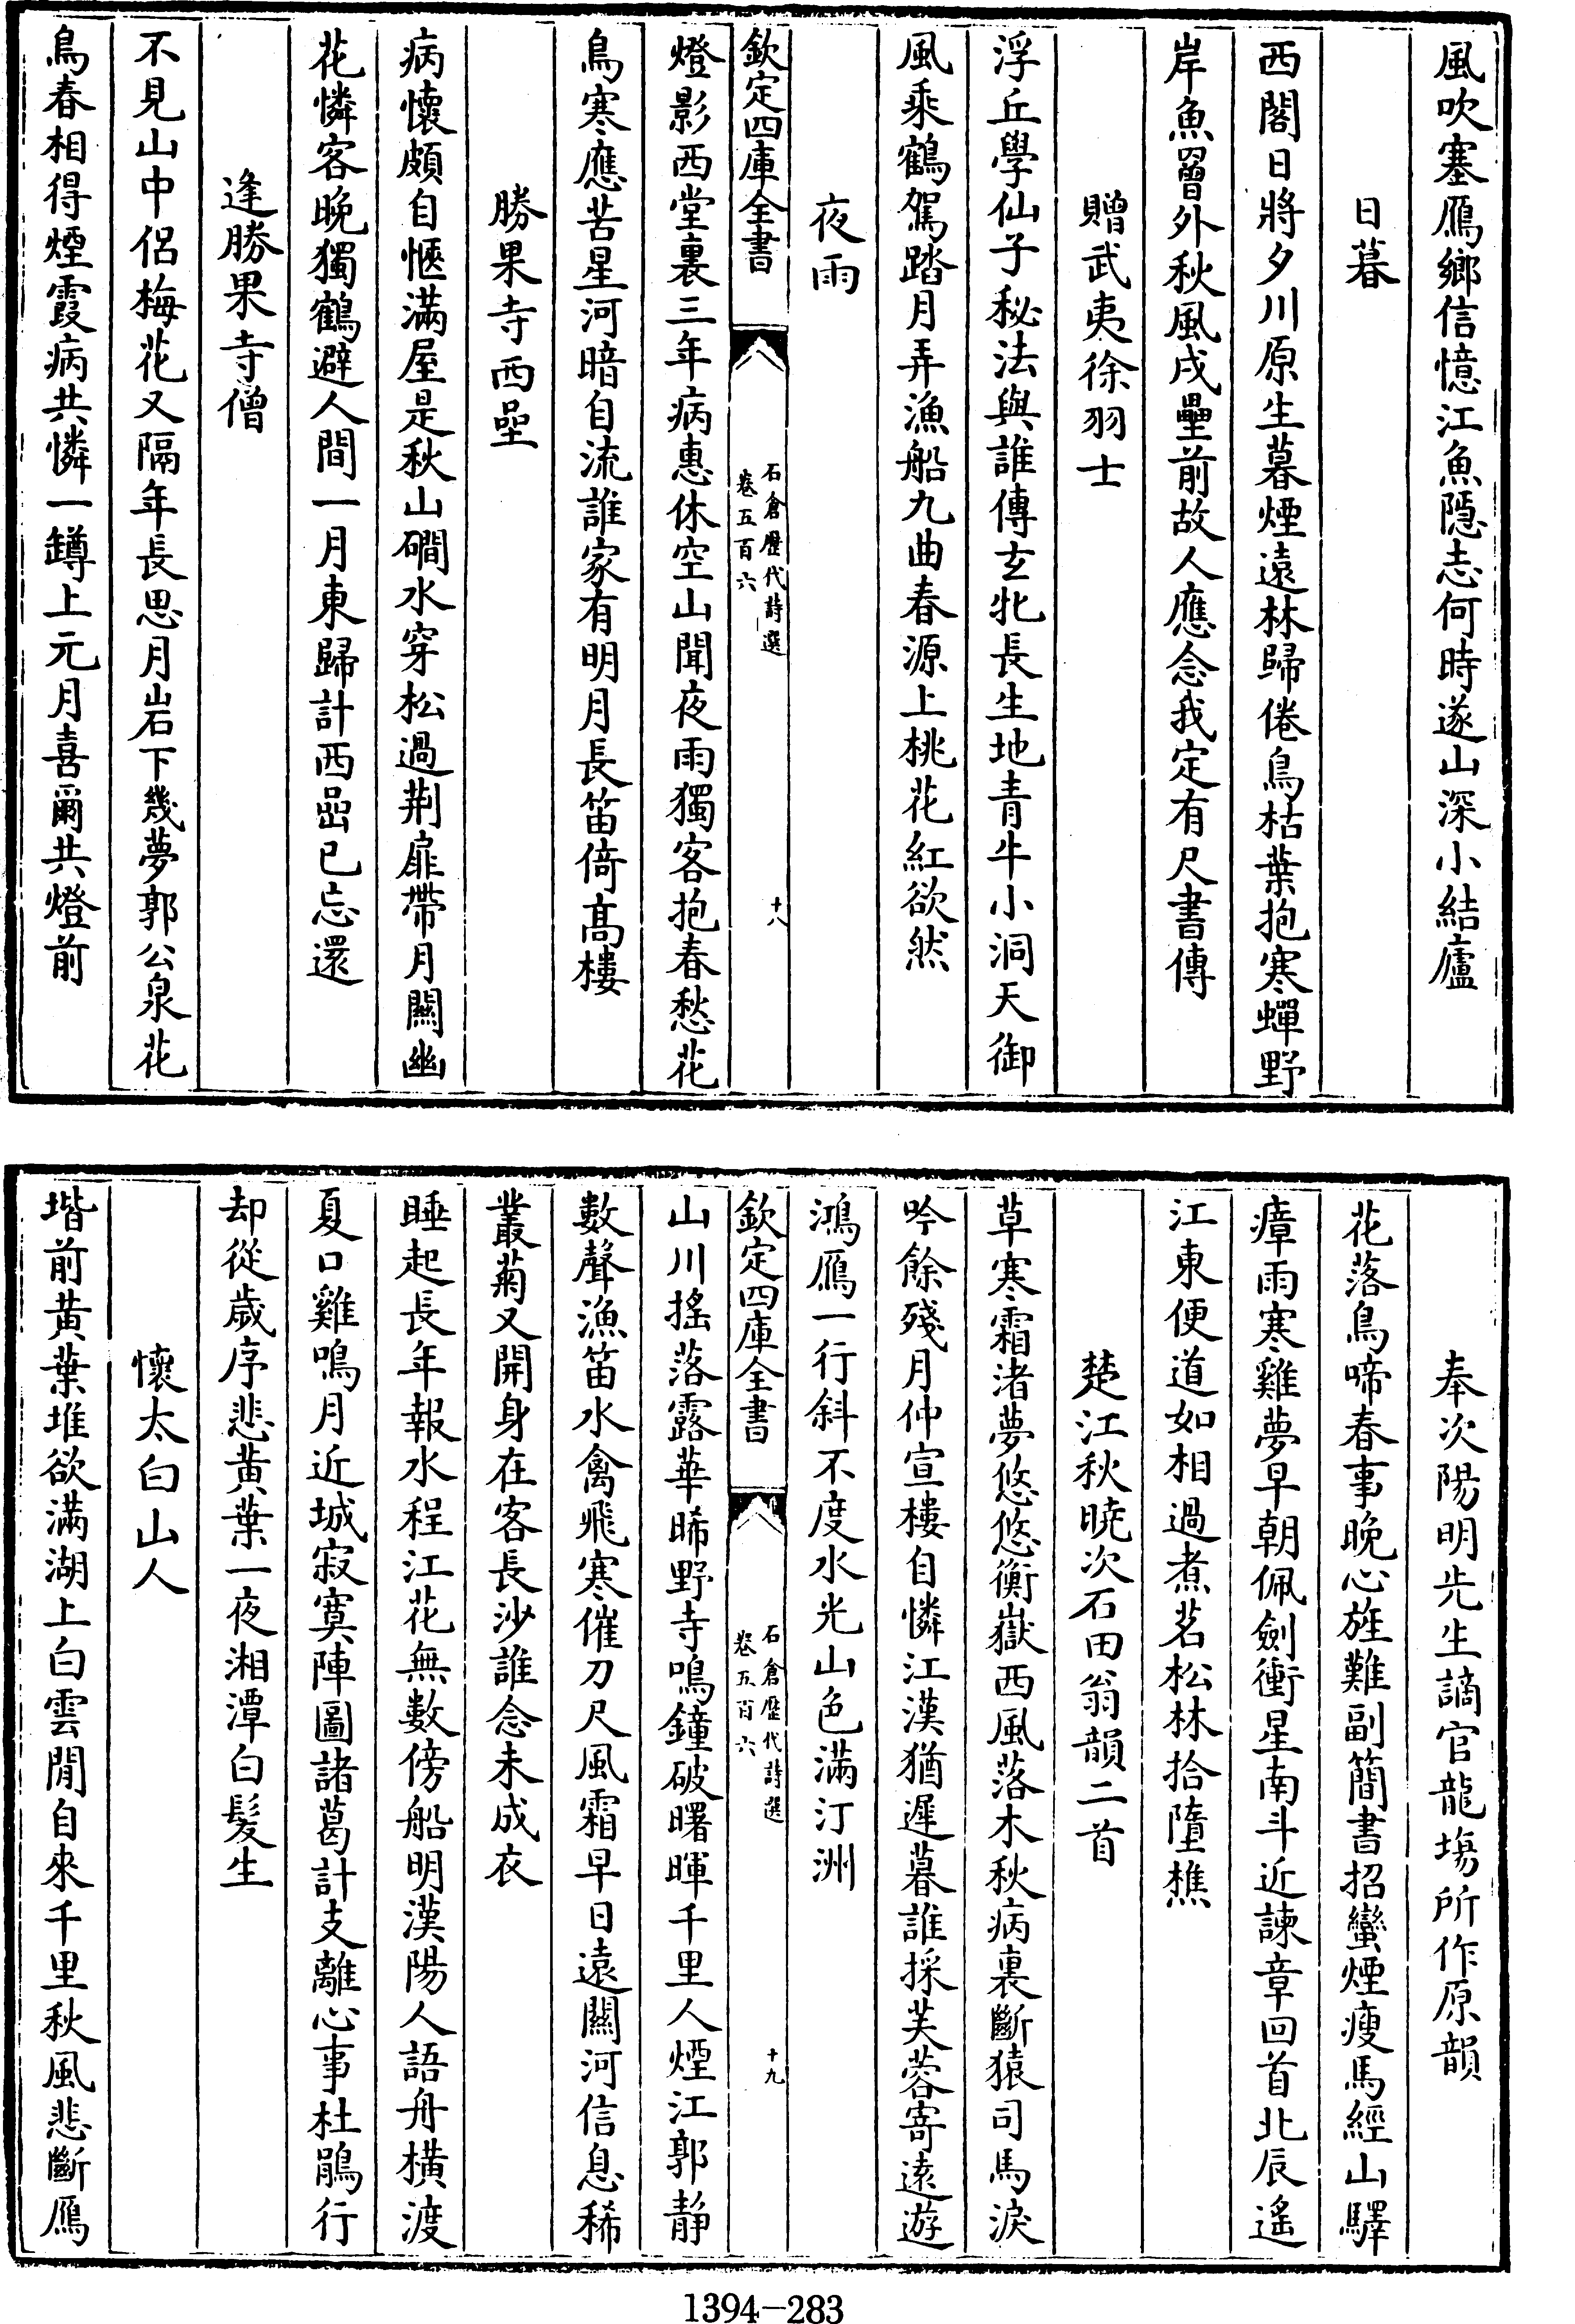 風吹塞鴈鄉信憶江魚隱志何時遂山深小結廬
日暮
西閣日將夕川原生暮煙遠林歸倦鳥枯葉抱寒蟬野
岸魚罾外秋風戍壘前故人應念我定有尺書傳
贈武夷徐羽士
浮丘學仙子秘法與誰傳玄牝長生地青牛小洞天御
風乘鶴駕踏月弄漁船九曲春源上桃花紅欲然
夜雨
欽定四庫全書
石倉歷代詩選
卷五百六
十八
燈影西堂裏三年病惠休空山聞夜雨獨客抱春愁花
鳥寒應苦星河暗自流誰家有明月長笛倚髙樓
勝果寺西嵒
病懷頗自愜滿屋是秋山磵水穿松過荆扉帶月關幽
花憐客晚獨鶴避人間一月東歸計西嵒已忘還
逢勝果寺僧
不見山中侶梅花又隔年長思月岩下幾夢郭公泉花
鳥春相得煙霞病共憐一罇上元月喜爾共燈前
奉次陽明先生謫官龍塲所作原韻
花落鳥啼春事晚心旌難副簡書招蠻煙瘦馬經山驛
瘴雨寒雞夢早朝佩劍衝星南斗近諫章回首北辰遙
江東便道如相過煮茗松林拾墮樵
楚江秋曉次石田翁韻二首
草寒霜渚夢悠悠衡嶽西風落木秋病裏斷猿司馬淚
吟餘殘月仲宣樓自憐江漢猶遲暮誰採芙蓉寄遠遊
鴻鴈一行斜不度水光山色滿汀洲
欽定四庫全書
石倉歷代詩選
卷五百六
十九
山川搖落露華晞野寺鳴鐘破曙暉千里人煙江郭靜
數聲漁笛水禽飛寒催刀尺風霜早日遠關河信息稀
叢菊又開身在客長沙誰念未成衣
睡起長年報水程江花無數傍船明漢陽人語舟橫渡
夏口雞鳴月近城寂寞陣圖諸葛計支離心事杜鵑行
却從歲序悲黄葉一夜湘潭白髮生
懷太白山人
堦前黄葉堆欲滿湖上白雲閒自來千里秋風悲斷鴈
1394-283